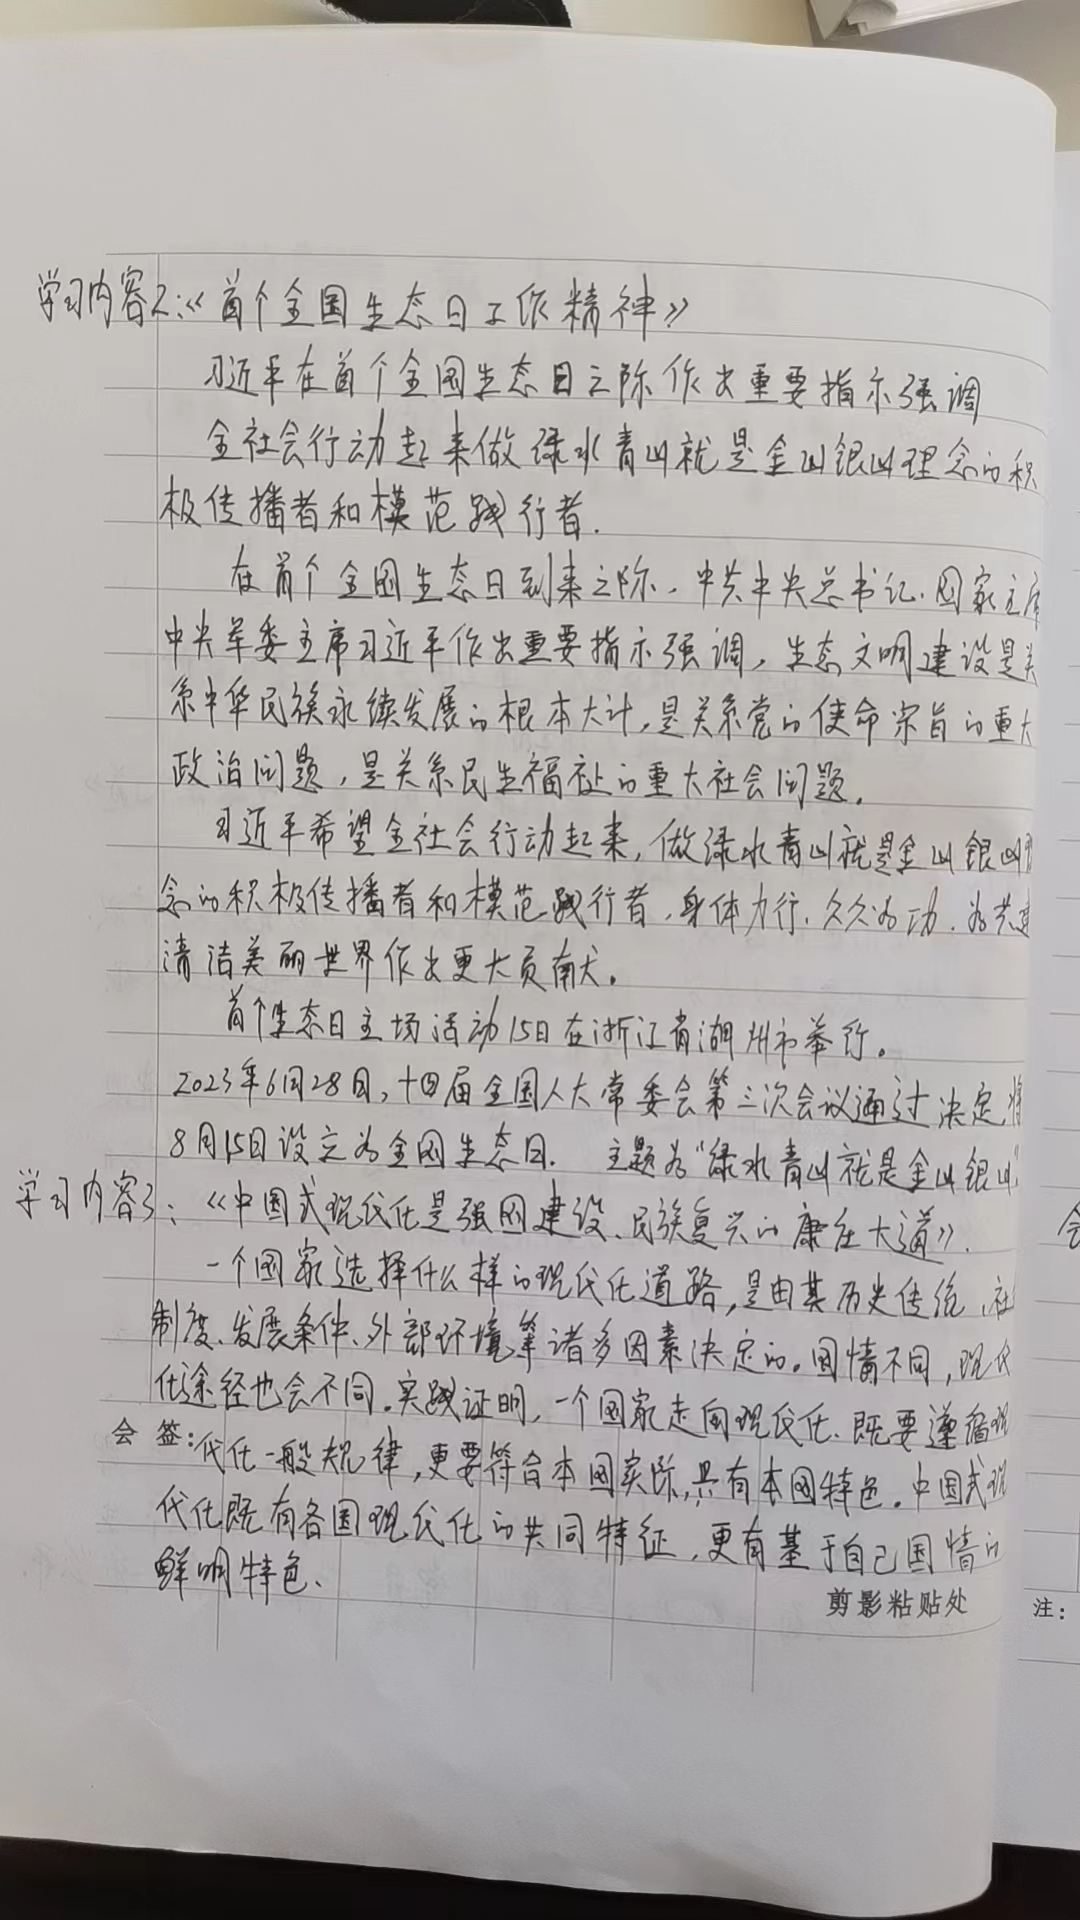 学习内容2:《首个全国生态日工作精神》
习近平在首个全国生态日之际作出重要指示强调
全社会行动起来做绿水青山就是金山银山理念的积
极传播者和模范践行者.
在首个全国生态日到来之际、中共中央总书记、国家主席
中央军委主席习近平作出重要指示强调,生态文明建设是关
系中华民族永续发展的根本大计,是关系党的使命宗旨的重大
政治问题,是关系民生福祉的重大社会问题。
习近平希望全社会行动起来,做绿水青山就是金山银山理
念的积极传播者和模范践行者、身体力行、久久为功、为共建
清洁美丽世界作出更大贡献。
首个生态日主场活动15日在浙江省湖州市举行。
2023年6月28日,十四届全国人大常委会第三次会议通过决定,将
8月15日设立为全国生态日. 主题为“绿水青山就是金山银山”
学习内容3:《中国式现代化是强国建设、民族复兴的康庄大道》.
一个国家选择什么样的现代化道路,是由其历史传统、社
制度、发展条件、外部环境等诸多因素决定的。国情不同,现代
化途径也会不同。实践证明,一个国家走向现代化、既要遵循现
会 签:代化一般规律,更要符合本国实际,具有本国特色。中国式现
代化既有各国现代化的共同特征,更有基于自己国情的
鲜明特色、
剪影粘贴处
注:
会